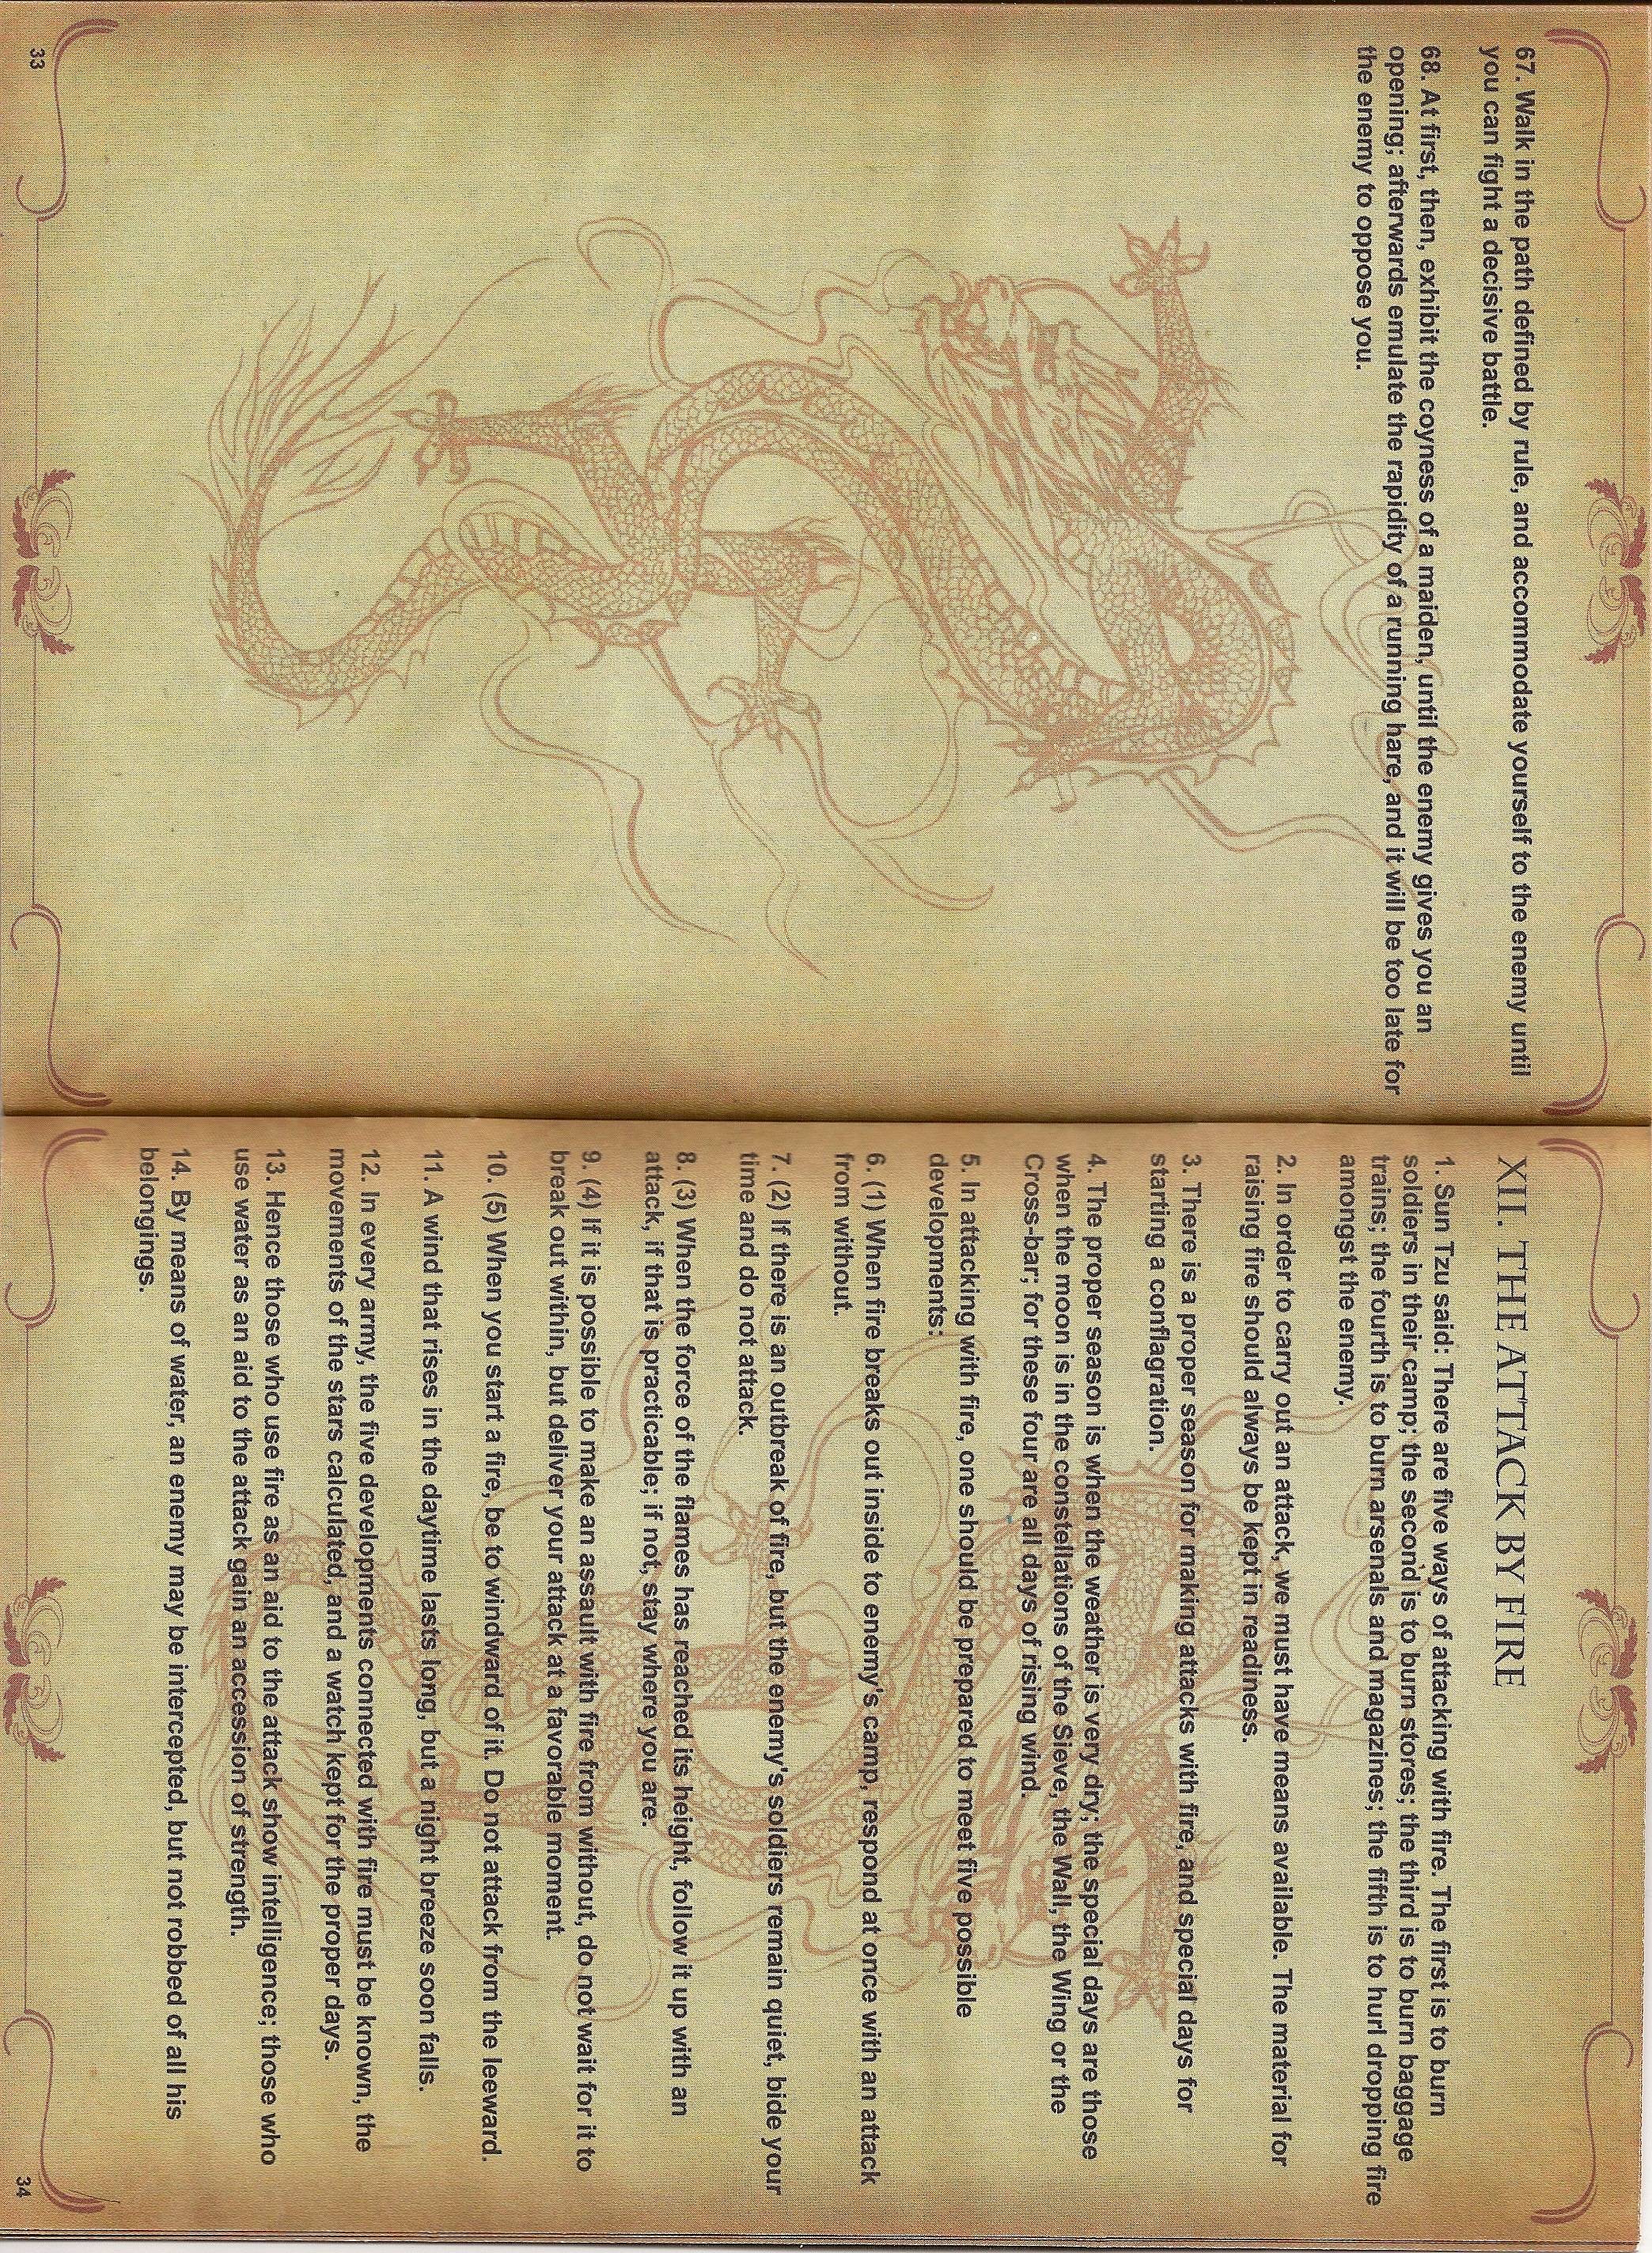 67. Walk in the path defined by rule, and accommodate yourself to the enemy until
you can fight a decisive battle.
68. At first, then, exhibit the coyness of a maiden, until the enemy gives you an
opening; afterwards emulate the rapidity of a running hare, and it will be too late for
the enemy to oppose you.
33
XII. THE ATTACK BY FIRE
1. Sun Tzu said: There are five ways of attacking with fire. The first is to burn
soldiers in their camp; the second is to burn stores; the third is to burn baggage
trains; the fourth is to burn arsenals and magazines; the fifth is to hurl dropping fire
amongst the enemy.
2. In order to carry out an attack, we must have means available. The material for
raising fire should always be kept in readiness.
3. There is a proper season for making attacks with fire, and special days for
starting a conflagration.
4. The proper season is when the weather is very dry; the special days are those
when the moon is in the constellations of the Sieve, the Wall, the Wing or the
Cross-bar; for these four are all days of rising wind.
5. In attacking with fire, one should be prepared to meet five possible
developments:
6. (1) When fire breaks out inside to enemy's camp, respond at once with an attack
from without.
7. (2) If there is an outbreak of fire, but the enemy's soldiers remain quiet, bide your
time and do not attack.
8. (3) When the force of the flames has reached its height, follow it up with an
attack, if that is practicable; if not, stay where you are.
9. (4) If it is possible to make an assault with fire from without, do not wait for it to
break out within, but deliver your attack at a favorable moment.
10. (5) When you start a fire, be to windward of it. Do not attack from the leeward.
11. A wind that rises in the daytime lasts long, but a night breeze soon falls.
12. In every army, the five developments connected with fire must be known, the
movements of the stars calculated, and a watch kept for the proper days.
13. Hence those who use fire as an aid to the attack show intelligence; those who
use water as an aid to the attack gain an accession of strength.
14. By means of water, an enemy may be intercepted, but not robbed of all his
belongings.
34